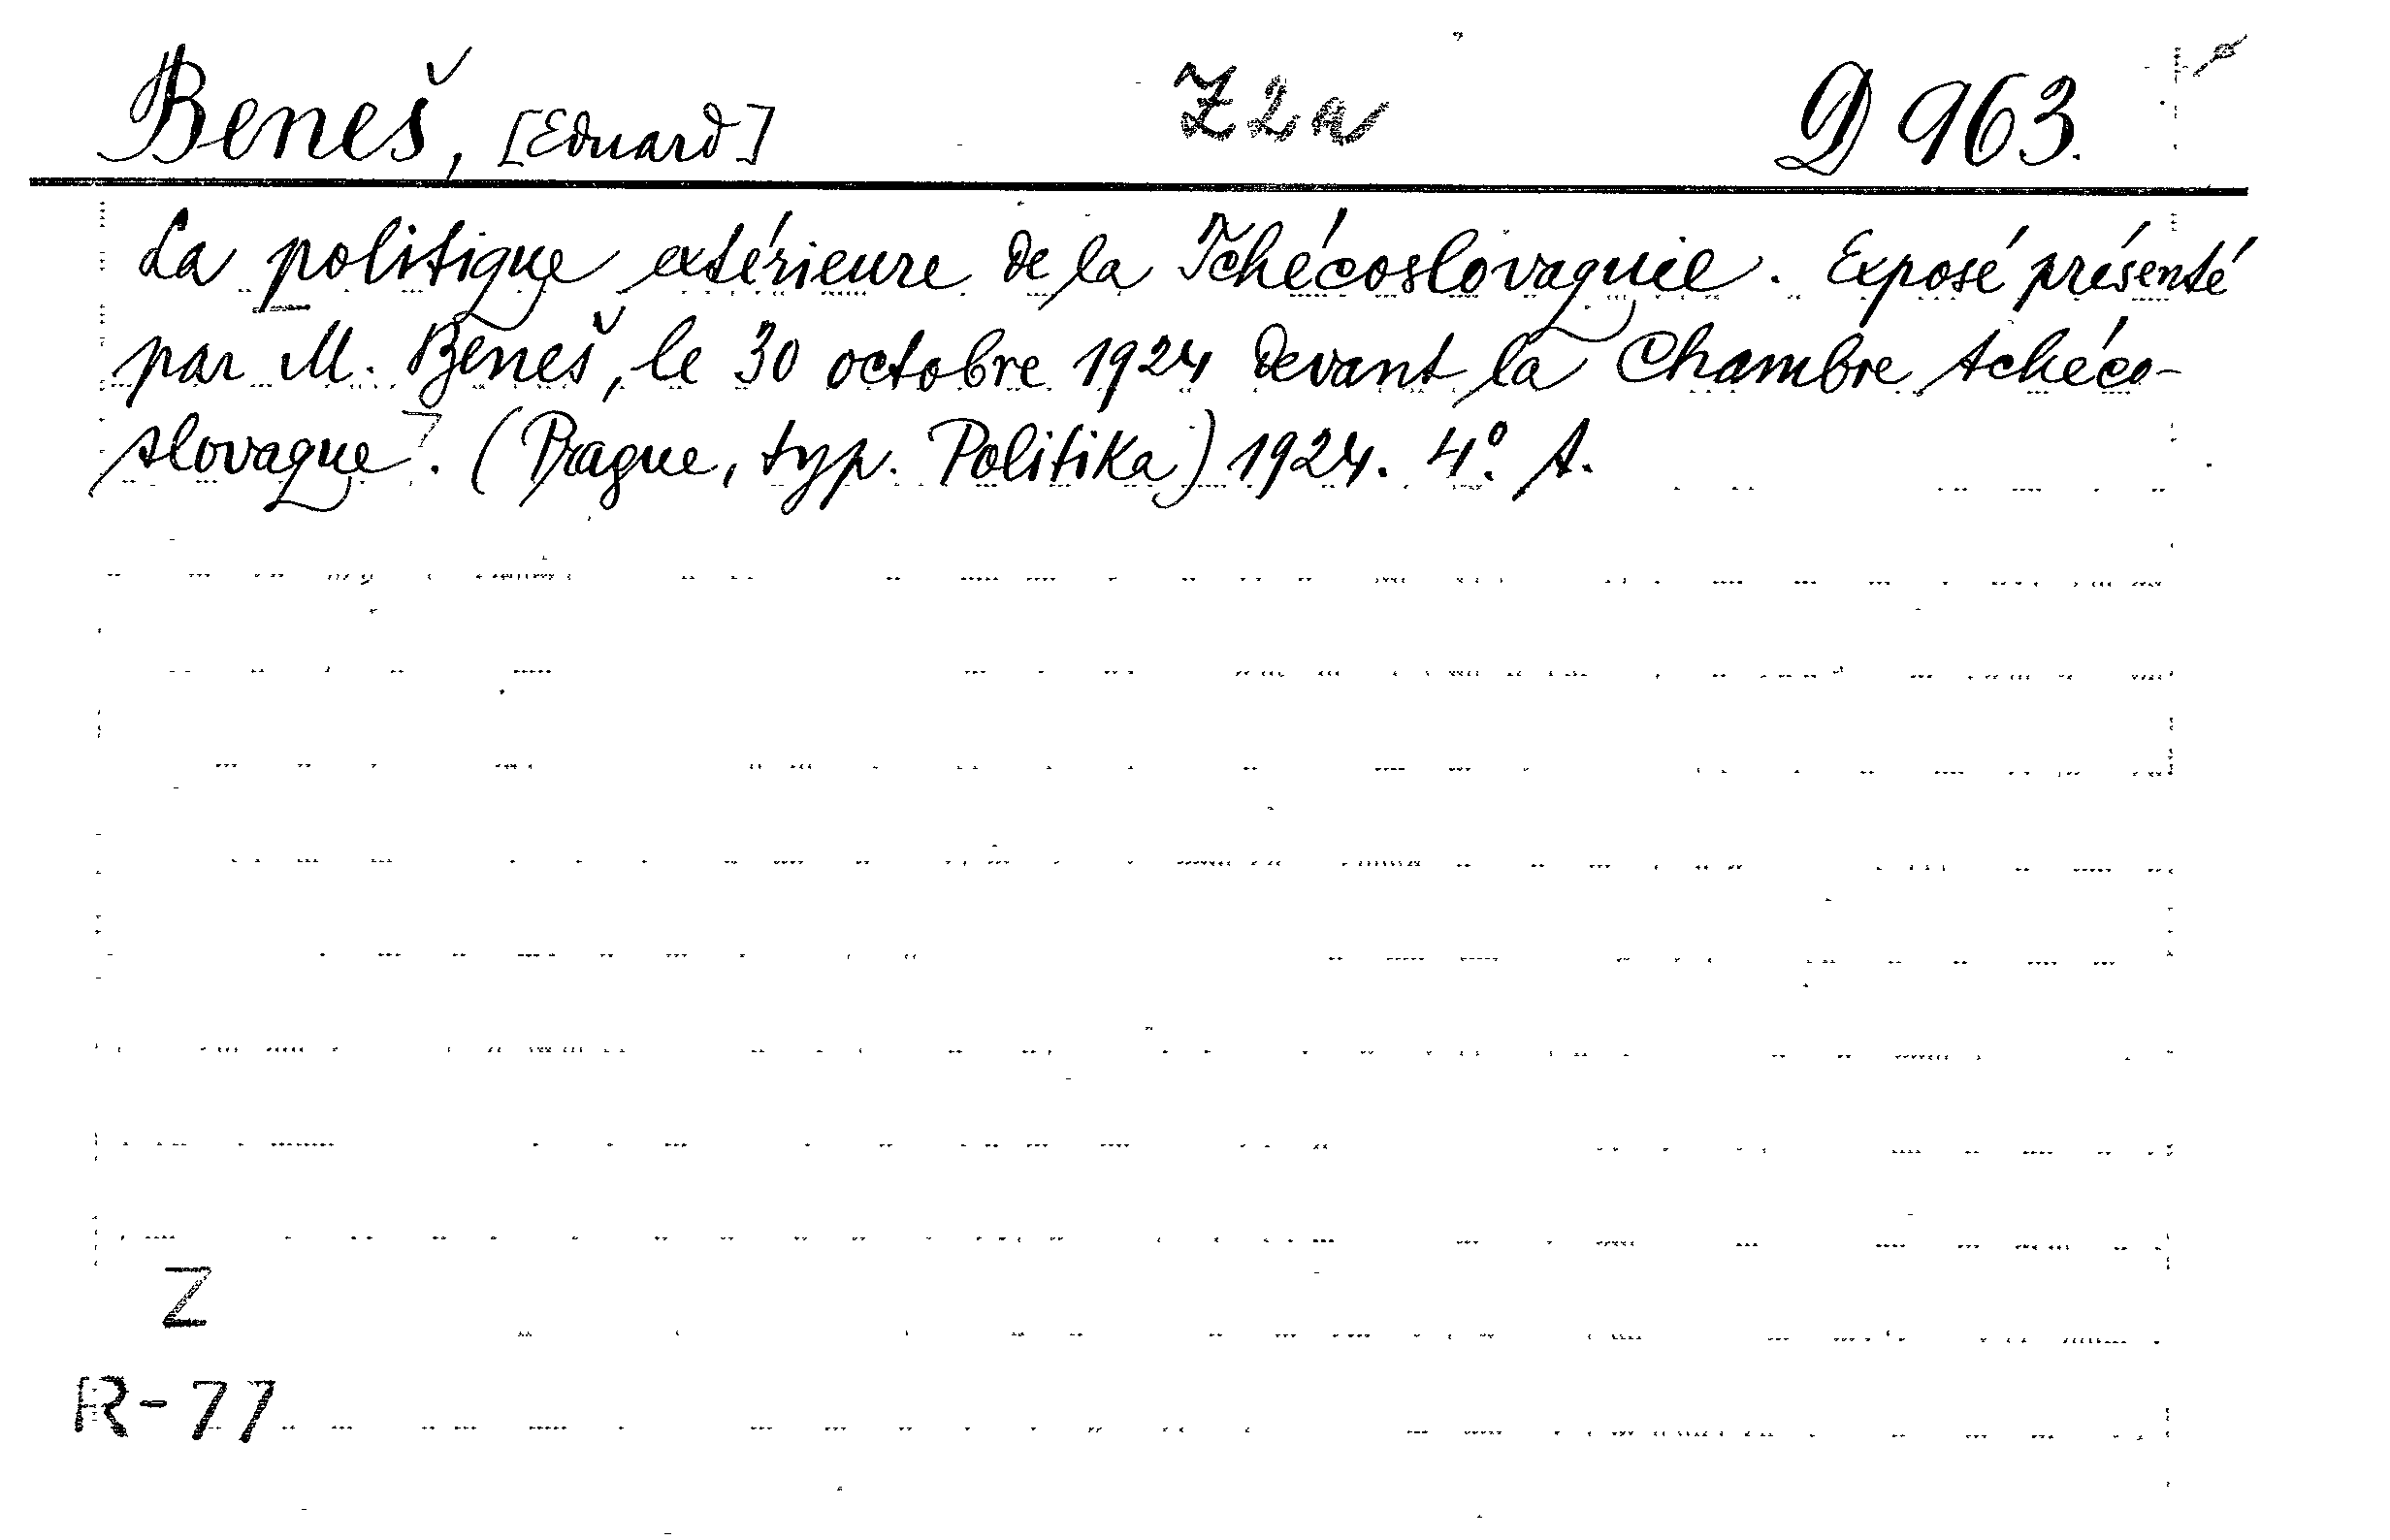 Beneš, [Eduard] Z2a D 963.
La politique extérieure de la Tchécoslovaquie. Exposé présenté
par M. Beneš, le 30 octobre 1924 devant la Chambre tchéco-
slovaque. (Prague, typ. Politika) 1924. 4°. A.
Z
R-77